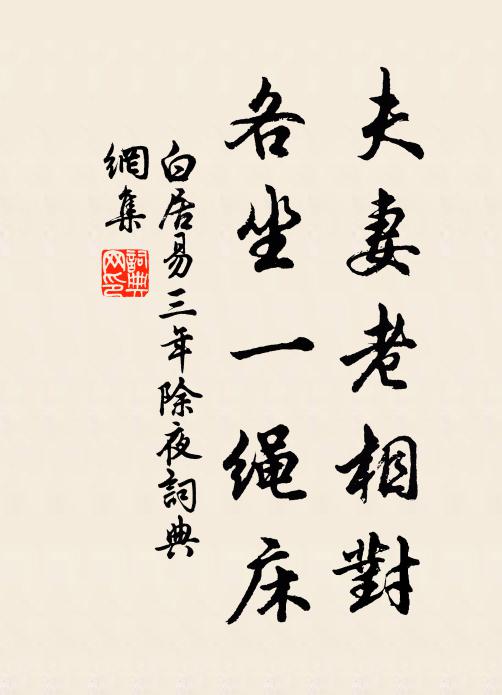 夫妻老相對
各坐一绳床
白居易三年除夜詞典
網集
詞典
网印